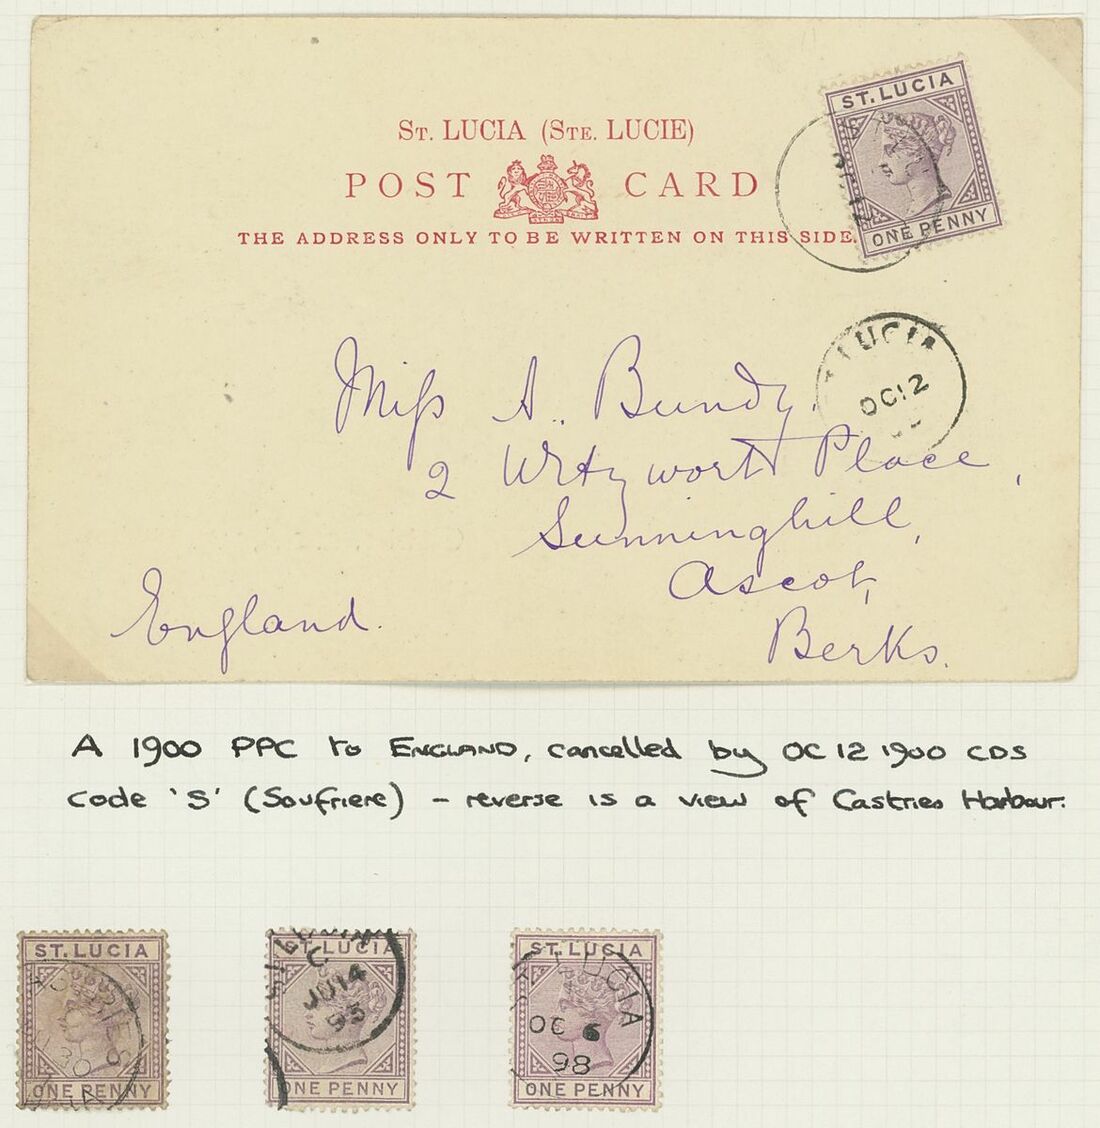 ST. LUCIA (STE. LUCIE)
POST CARD
THE ADDRESS ONLY TO BE WRITTEN ON THIS SIDE.
ST. LUCIA
ONE PENNY
LUCIA
OC 12
Miss A. Bundy.
2 Place,
Sunninghill,
Ascot,
Berks.
England.
A 1900 PPC to ENGLAND, cancelled by OC 12 1900 CDS
code 'S' (Soufriere) – reverse is a view of Castries Harbour.
ST. LUCIA
ONE PENNY
ST. LUCIA
ST. LUCIA
C
JU 14
95
ONE PENNY
ST. LUCIA
ST. LUCIA
OC 6
98
ONE PENNY